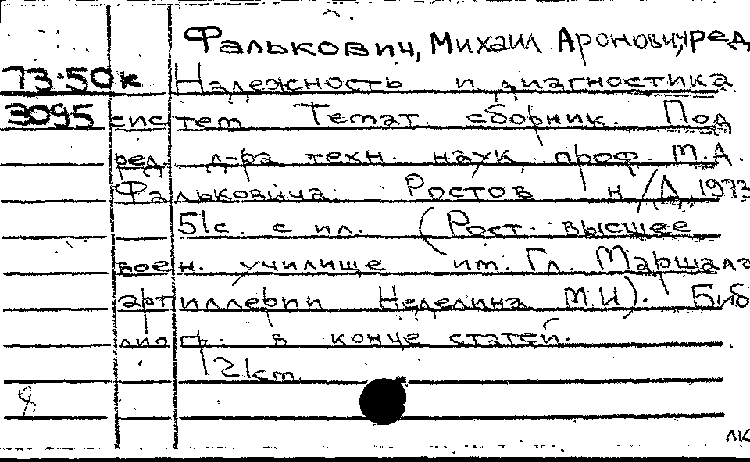 Фалькович, Михаил Аронович, ред.
73-50к Надежность и диагностика
3095 систем. Темат. сборник. Под
ред. д-ра техн. наук проф. М.А.
Фальковича. Ростов н/Д, 1973
51с. с ил. (Рост. высшее
воен. училище им. Гл. Маршала
артиллерии Неделина М.И). Биб
лиогр. в конце статей.
12km